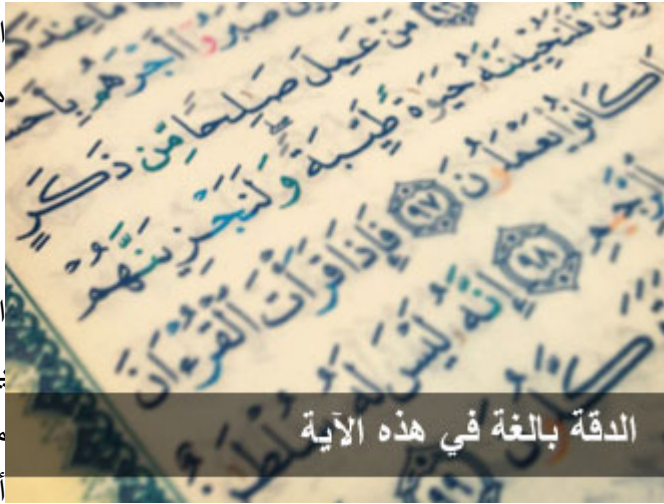 صَبَرُوٓا۟ أَجْرَهُم بِأَحْسَ
٩٦ مَنْ عَمِلَ صَٰلِحًا مِّن ذَكَرٍ
فَلَنُحْيِيَنَّهُۥ حَيَوٰةً طَيِّبَةً وَلَنَجْزِيَنَّهُمْ
كَانُوا۟ يَعْمَلُونَ ٩٧ فَإِذَا قَرَأْتَ ٱلْقُرْءَانَ
ٱلرَّجِيمِ ٩٨ إِنَّهُۥ لَيْسَ لَهُۥ سُلْطَٰنٌ
٩٩
الدقة بالغة في هذه الآية